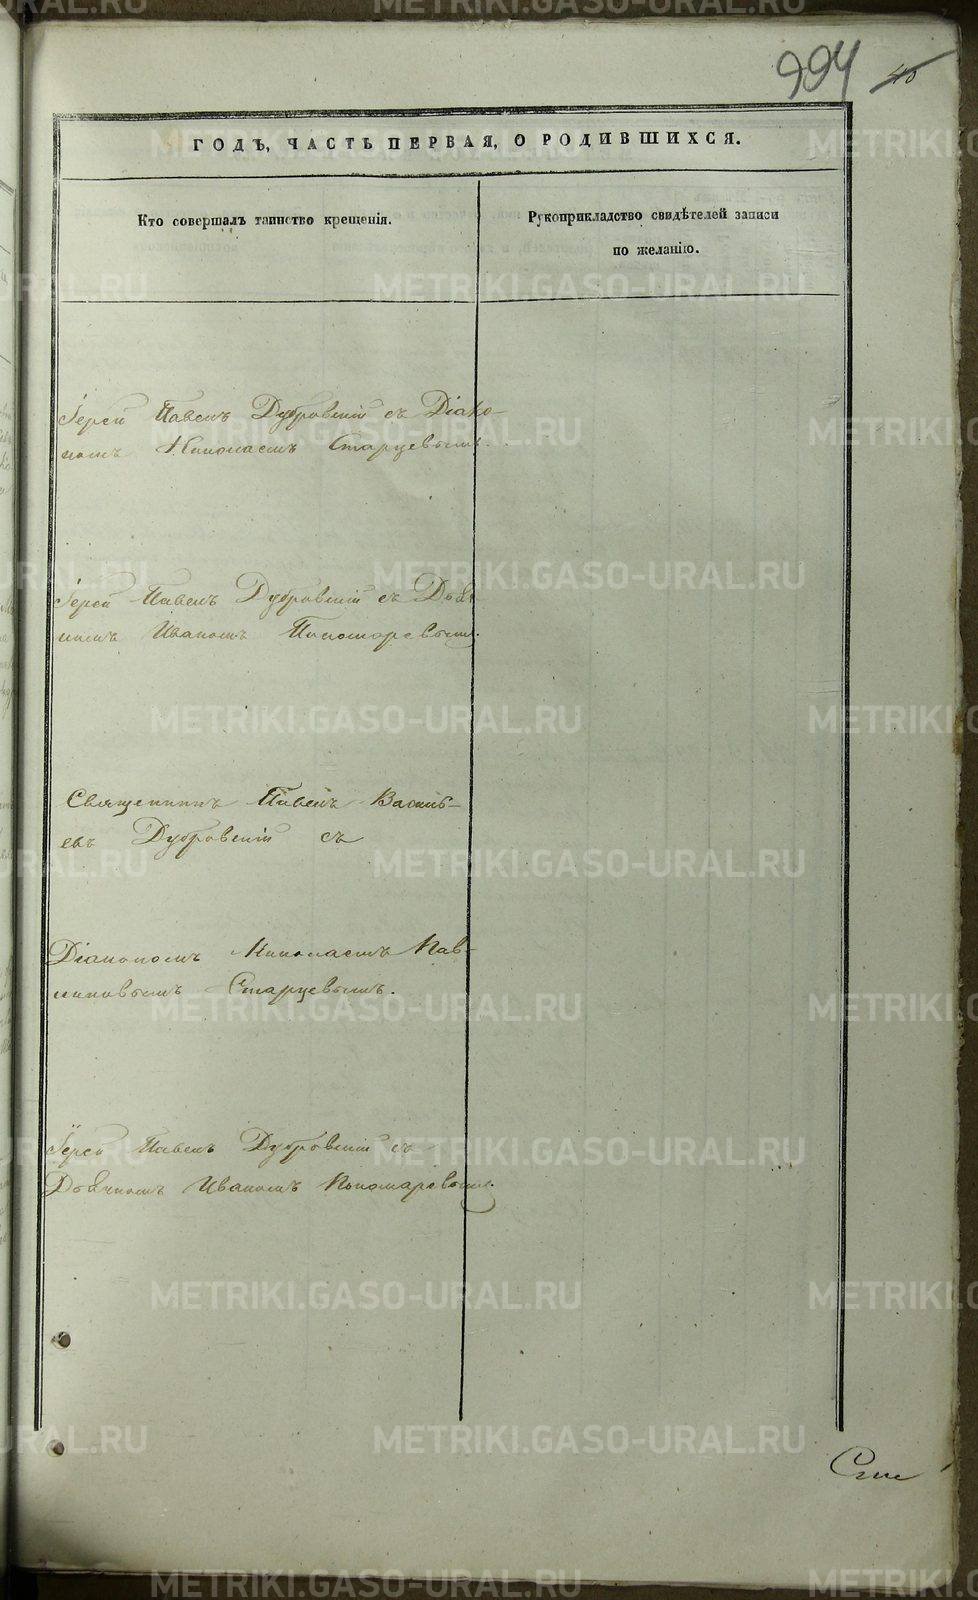 994 40
ГОДЪ, ЧАСТЬ ПЕРВАЯ, О РОДИВШИХСЯ.
Кто совершалъ таинство крещенія.
Рукоприкладство свидѣтелей записи
по желанію.
Іерей Павелъ Дубровскій съ Діако-
номъ Николаемъ Старцевымъ.
Іерей Павелъ Дубровскій съ Дьяч-
комъ Иваномъ Пономаревымъ.
Священникъ Павелъ Василь-
евъ Дубровскій съ
Діакономъ Николаемъ Пав-
линовымъ Старцевымъ.
Іерей Павелъ Дубровскій съ
Дьячкомъ Иваномъ Пономаревымъ.
METRIKI.GASO-URAL.RU